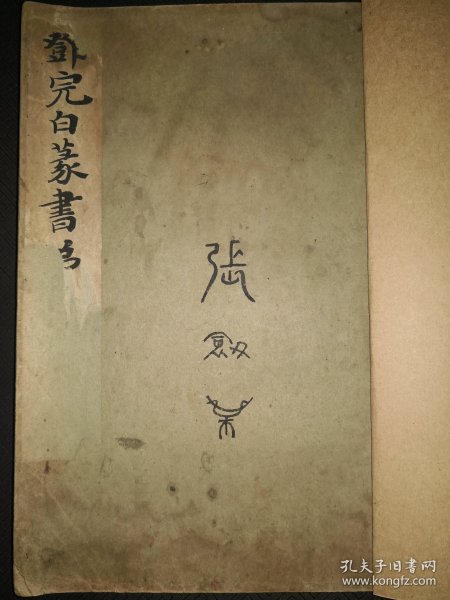 鄧完白篆書
張劔
孔夫子旧书网
www.kongfz.com